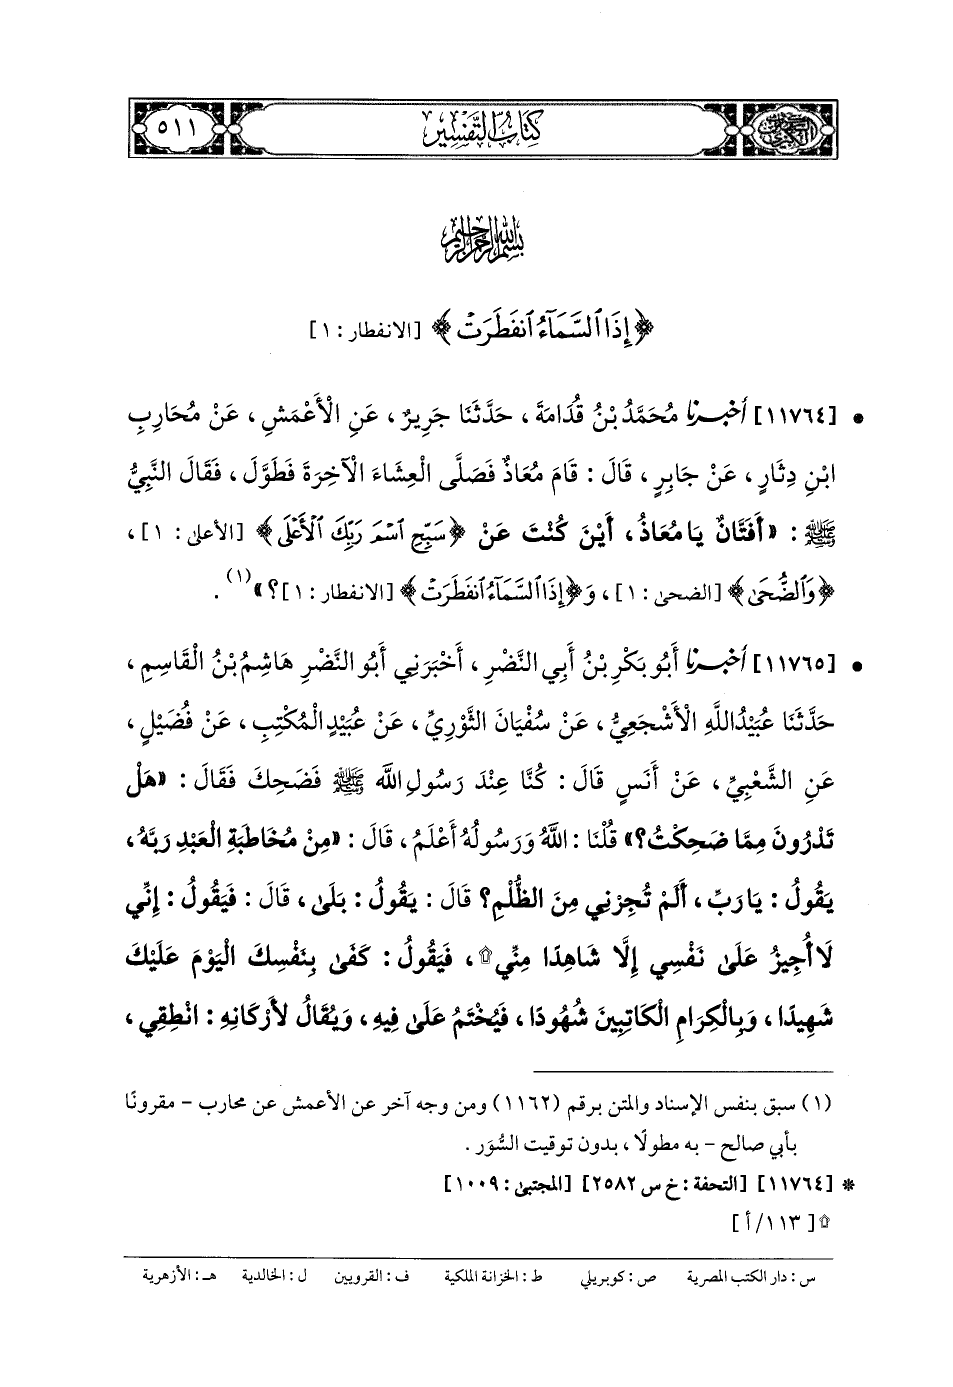 كتاب التفسير
٥١١
بسم الله الرحمن الرحيم
﴿ إِذَا ٱلسَّمَآءُ ٱنفَطَرَتۡ ﴾ [الانفطار : ١]
• [١١٧٦٤] أخبرنا مُحَمَّدُ بْنُ قُدَامَةَ ، حَدَّثَنَا جَرِيرٌ ، عَنِ الْأَعْمَشِ ، عَنْ مُحَارِبِ
ابْنِ دِثَارٍ ، عَنْ جَابِرٍ ، قَالَ : قَامَ مُعَاذٌ فَصَلَّى الْعِشَاءَ الْآخِرَةَ فَطَوَّلَ ، فَقَالَ النَّبِيُّ
ﷺ : «أَفَتَّانٌ يَا مُعَاذُ ، أَيْنَ كُنْتَ عَنْ ﴿سَبِّحِ ٱسۡمَ رَبِّكَ ٱلۡأَعۡلَى﴾ [الأعلى : ١] ،
﴿وَٱلضُّحَى﴾ [الضحى : ١] ، وَ﴿إِذَا ٱلسَّمَآءُ ٱنفَطَرَتۡ﴾ [الانفطار : ١]؟»(١) .
• [١١٧٦٥] أخبرنا أَبُو بَكْرِ بْنُ أَبِي النَّضْرِ ، أَخْبَرَنِي أَبُو النَّضْرِ هَاشِمُ بْنُ الْقَاسِمِ ،
حَدَّثَنَا عُبَيْدُ اللَّهِ الْأَشْجَعِيُّ ، عَنْ سُفْيَانَ الثَّوْرِيِّ ، عَنْ عُبَيْدٍ الْمُكْتِبِ ، عَنْ فُضَيْلٍ ،
عَنِ الشَّعْبِيِّ ، عَنْ أَنَسٍ قَالَ : كُنَّا عِنْدَ رَسُولِ اللَّه ﷺ فَضَحِكَ فَقَالَ : «هَلْ
تَدْرُونَ مِمَّا ضَحِكْتُ؟» قُلْنَا : اللَّهُ وَرَسُولُهُ أَعْلَمُ ، قَالَ : «مِنْ مُخَاطَبَةِ الْعَبْدِ رَبَّهُ ،
يَقُولُ : يَا رَبِّ ، أَلَمْ تُجِرْنِي مِنَ الظُّلْمِ؟ قَالَ : يَقُولُ : بَلَى ، قَالَ : فَيَقُولُ : إِنِّي
لَا أُجِيزُ عَلَى نَفْسِي إِلَّا شَاهِدًا مِنِّي۩ ، فَيَقُولُ : كَفَى بِنَفْسِكَ الْيَوْمَ عَلَيْكَ
شَهِيدًا ، وَبِالْكِرَامِ الْكَاتِبِينَ شُهُودًا ، فَيُخْتَمُ عَلَى فِيهِ ، وَيُقَالُ لأَرْكَانِهِ : انْطِقِي ،
(١) سبق بنفس الإسناد والمتن برقم (١١٦٢) ومن وجه آخر عن الأعمش عن محارب - مقرونًا
بأبي صالح - به مطولًا ، بدون توقيت السُّوَر .
* [١١٧٦٤] [التحفة : خ س ٢٥٨٢] [المجتبى : ١٠٠٩]
۩ [١١٣/ أ]
س : دار الكتب المصرية ص : كوبريلي ط : الخزانة الملكية ف : القرويين ل : الخالدية هـ : الأزهرية